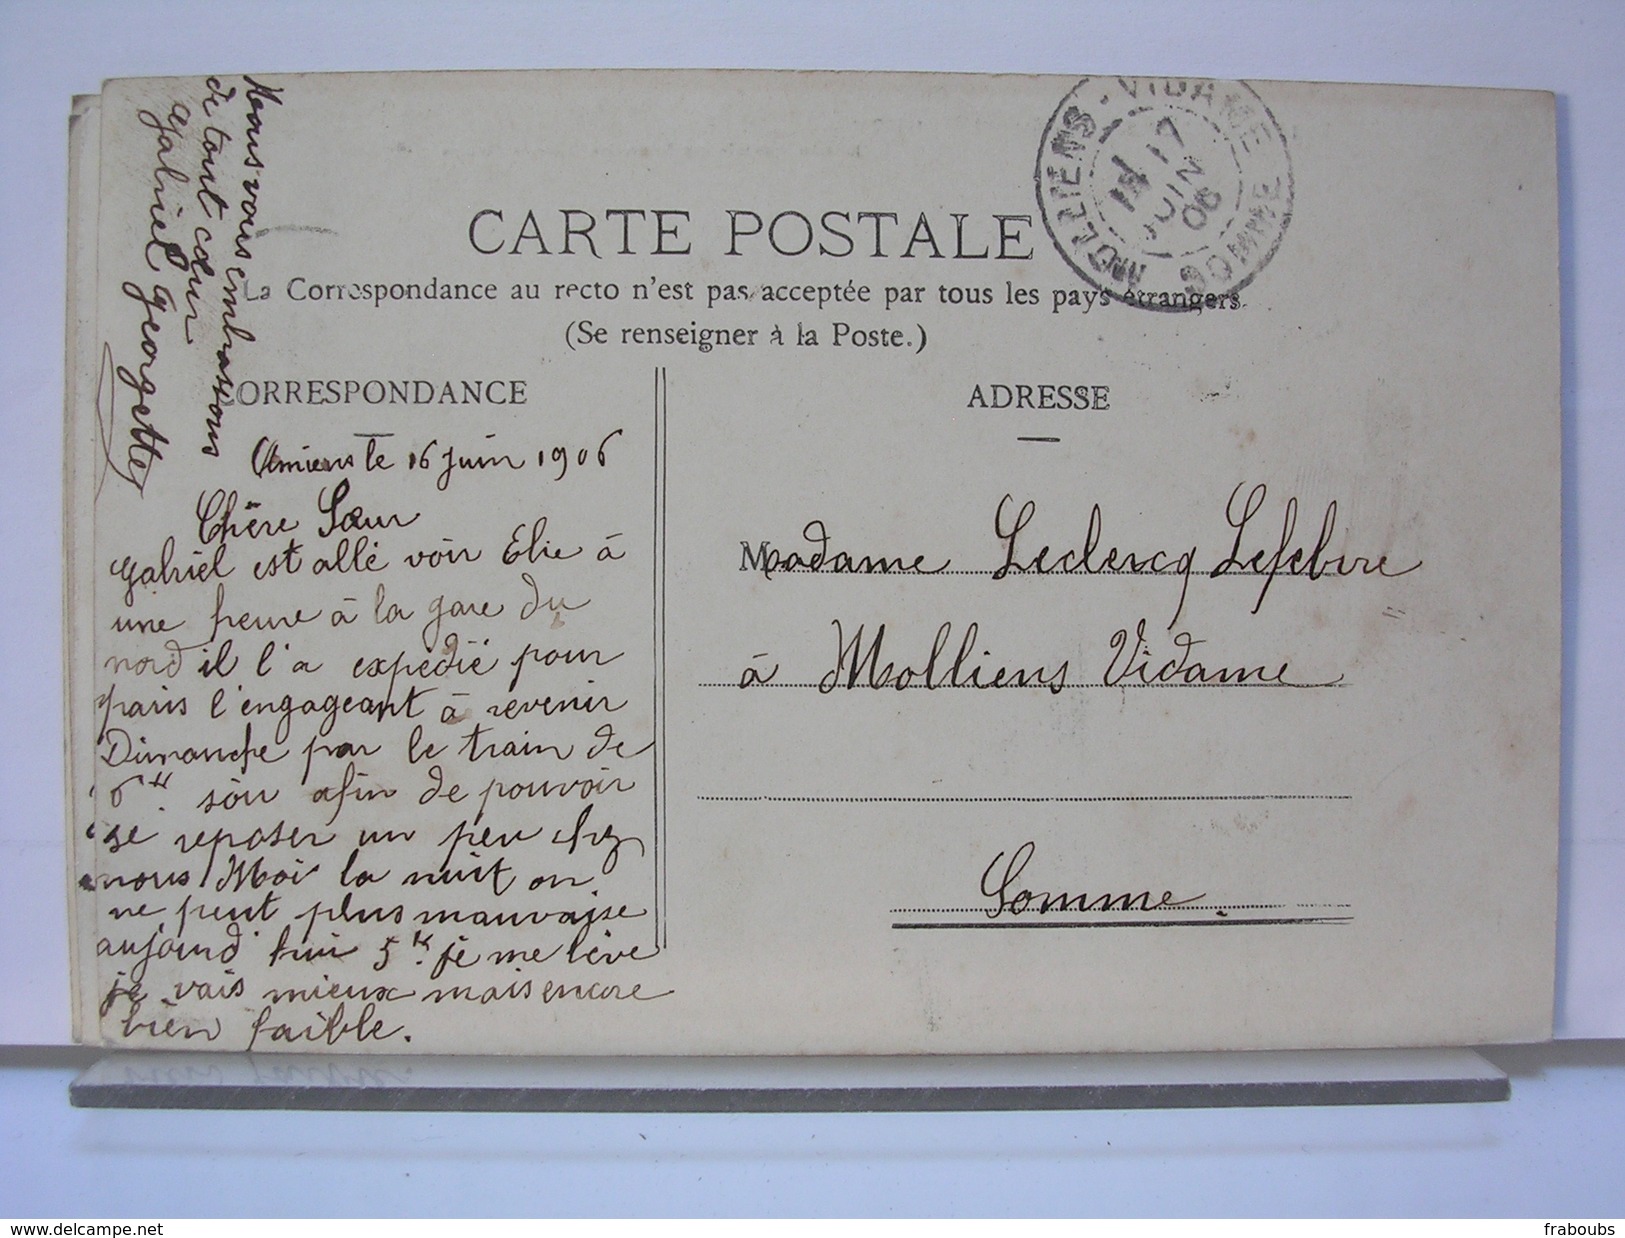 CARTE POSTALE
La Correspondance au recto n'est pas acceptée par tous les pays étrangers
(Se renseigner à la Poste.)
MOLLIENS-VIDAME SOMME
17
JUIN
06
CORRESPONDANCE
Amiens le 16 juin 1906
Chère Sœur
Gabriel est allé voir Elie à
une heure à la gare du
nord il l'a expédié pour
paris l'engageant à revenir
Dimanche par le train de
6 H. soir afin de pouvoir
se reposer un peu chez
nous Moi la nuit on
ne peut plus mauvaise
aujourd'hui 5 H. je me lève
je vais mieux mais encore
bien faible.
Nous vous embrassons
de tout cœur
Gabriel Georgette
ADRESSE
Madame Leclercq Lefebvre
à Molliens Vidame
Somme.
www.delcampe.net
fraboubs